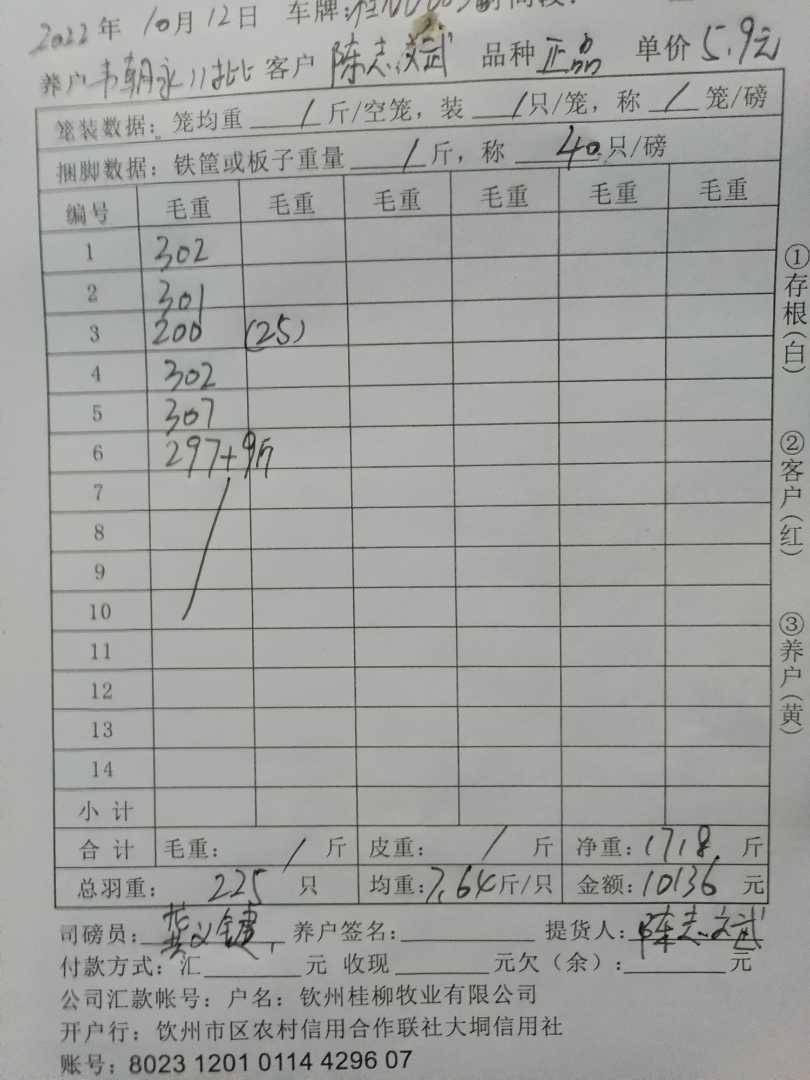 2022年10月12日 车牌:
养户 韦朝永11批 客户 陈志文武 品种 正品 单价 5.9元
笼装数据: 笼均重 / 斤/空笼, 装 / 只/笼, 称 / 笼/磅
捆脚数据: 铁筐或板子重量 / 斤, 称 40 只/磅
编号 毛重 毛重 毛重 毛重 毛重 毛重
1 302
2 301
3 200 (25)
4 302
5 307
6 297+9斤
7
8
9
10
11
12
13
14
小计
合计 毛重: / 斤 皮重: / 斤 净重: 1718 斤
总羽重: 225 只 均重: 7.64斤/只 金额: 10136 元
司磅员: 养户签名: 提货人: 陈志文武
付款方式: 汇 元 收现 元欠(余): 元
公司汇款帐号: 户名: 钦州桂柳牧业有限公司
开户行: 钦州市区农村信用合作联社大垌信用社
账号: 8023 1201 0114 4296 07
①存根(白)
②客户(红)
③养户(黄)